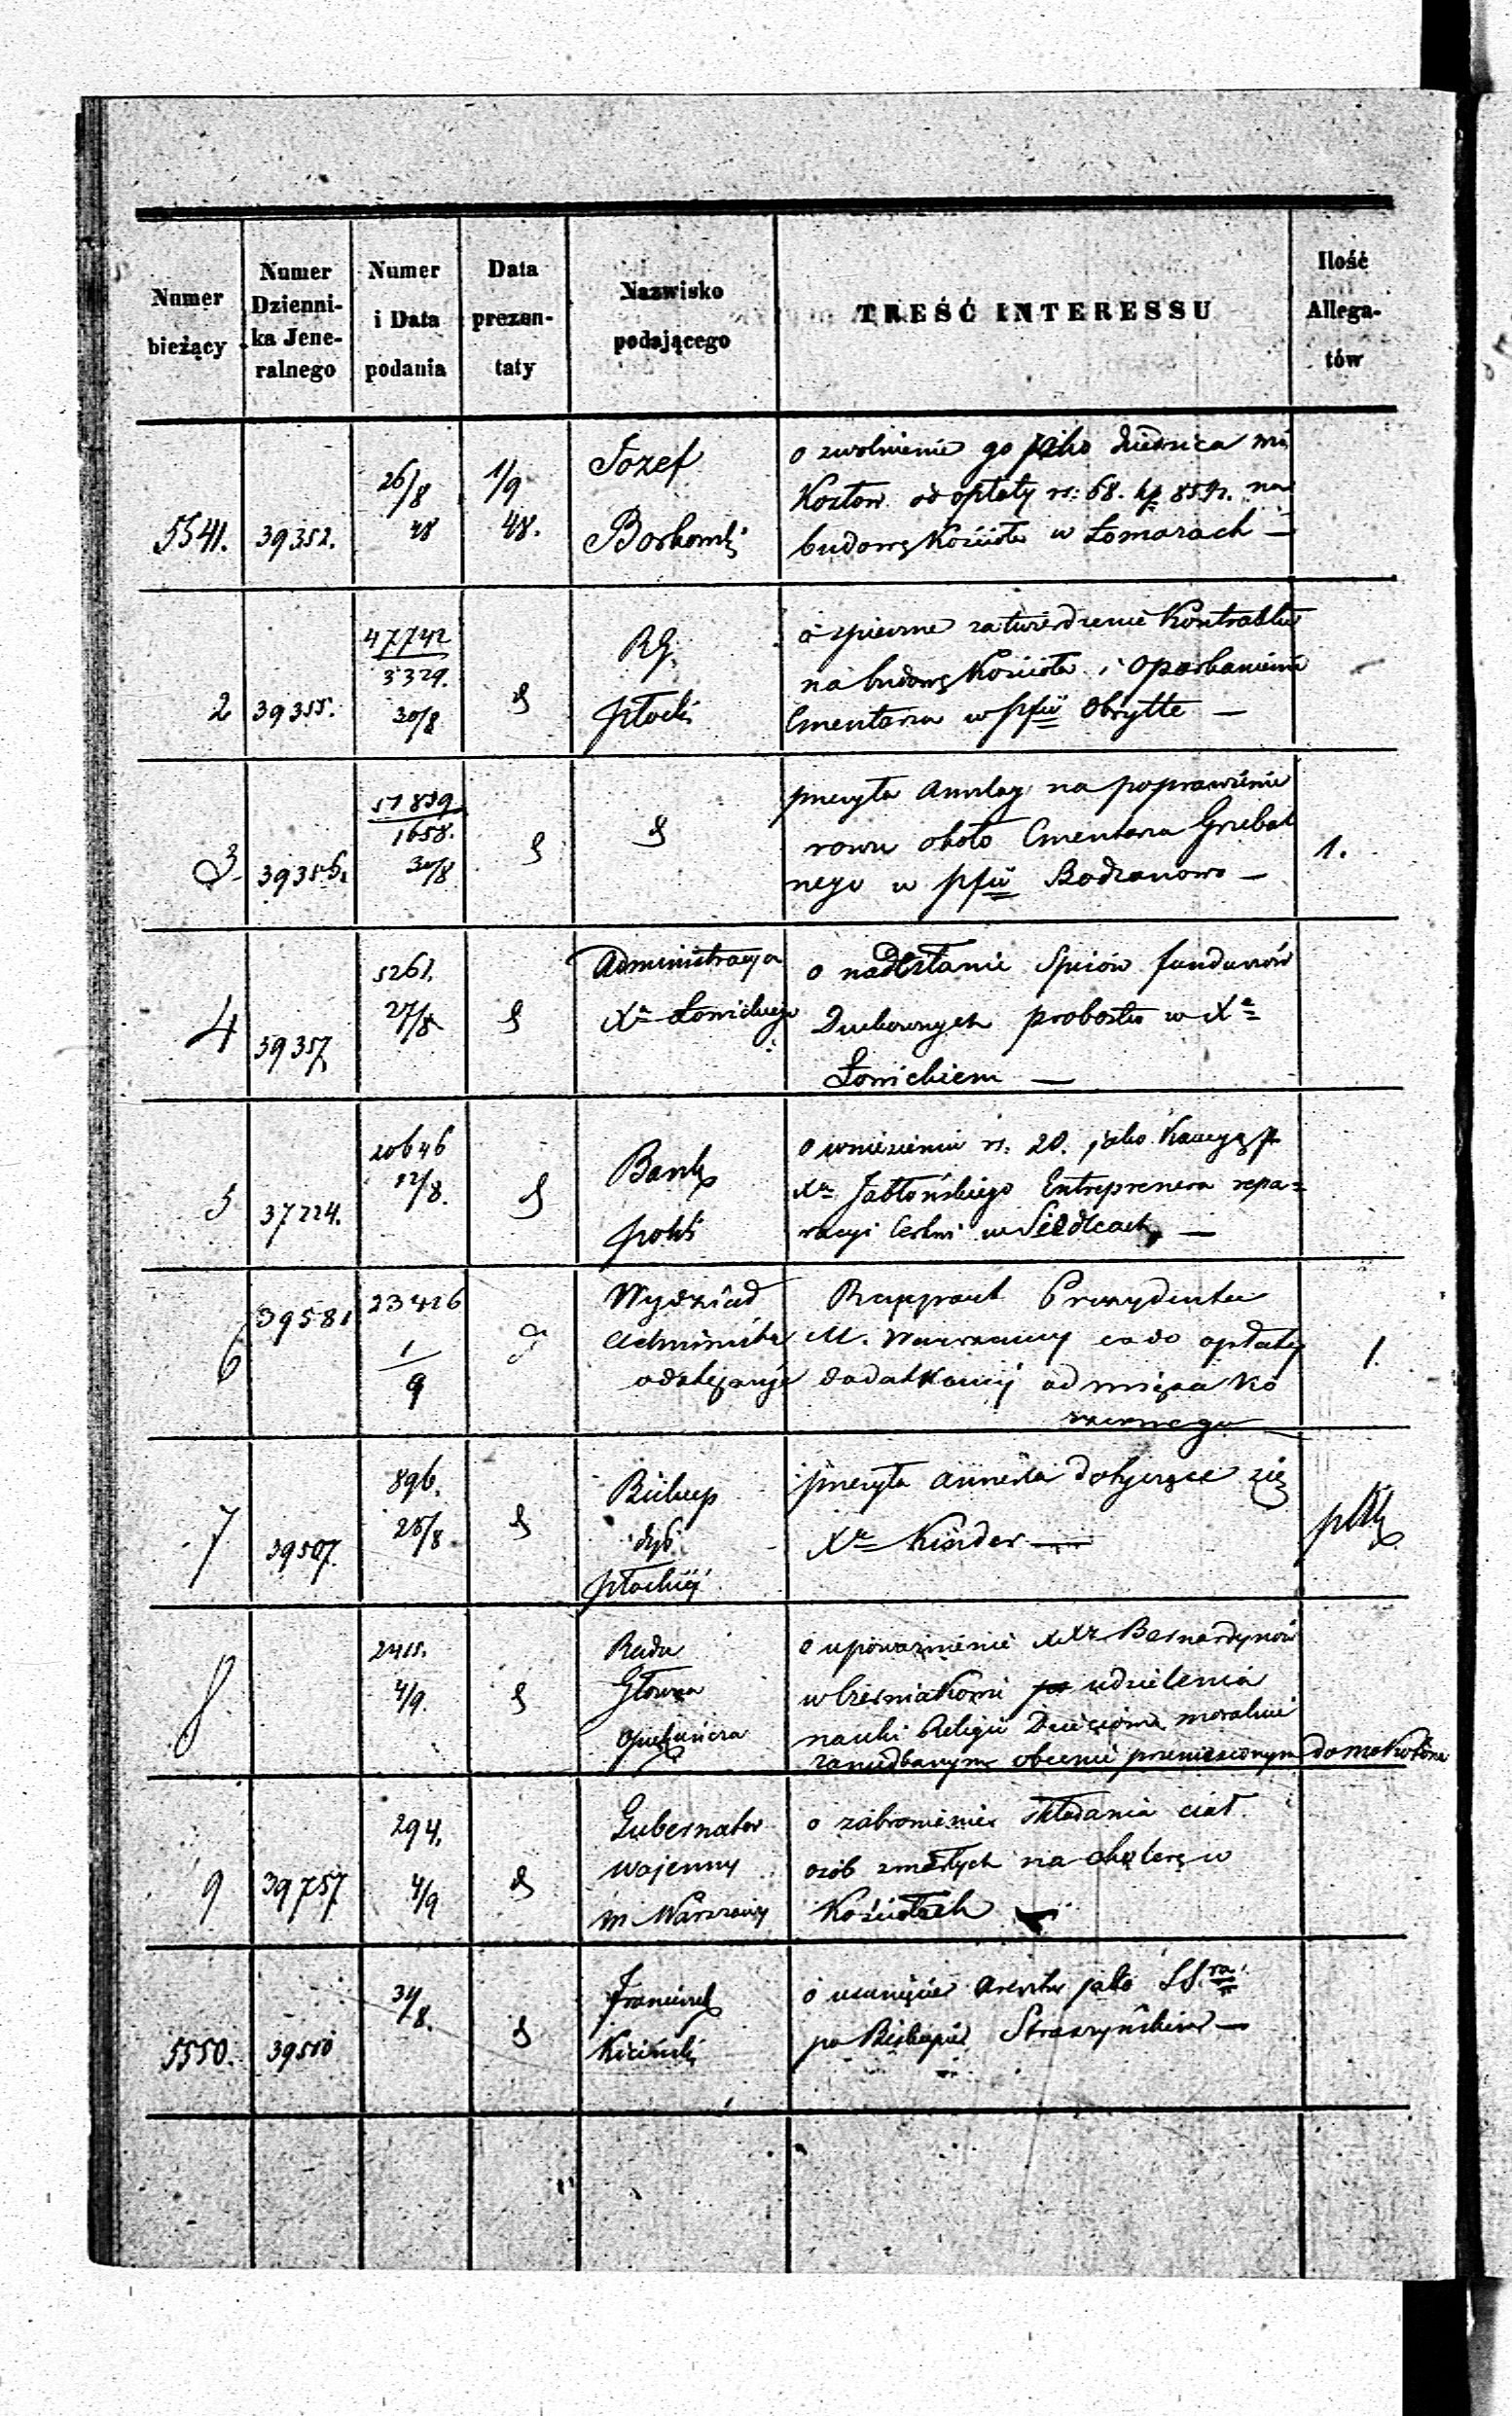 Numer bieżący
Numer Dzienni-ka Jene-ralnego
Numer i Data podania
Data prezen-taty
Nazwisko podającego
TREŚĆ INTERESSU
Ilość Allega-tów
5541. 39352. 26/8 48 1/9 48.
Jozef
Borkowski
o zwolnienie go jako dziedzica wsi
Kozłow od opłaty rs: 68. kp 85 na
budowę Kościoła w Łomazach —
2 39355. 47742 3329. 30/8
RG.
płocki
o zatwierdzenie Kontraktu
na budowę Kościoła i Oparkanienia
Cmentarza w pfii Obrytte —
3. 39356. 51859 1658. 30/8
przesyła Anszlag na poprawienie
rowu około Cmentarza Grzebal
nego w pfii Bodzanowo —
1.
4 39357 5261. 27/8
Administracya
Xa Łowickiego
o nadesłanie Spisów funduszów
Duchownych probostw w Xe
Łowickiem —
5 37224. 20646 12/8.
Bank
polski
o wniesieniu rs. 20. jako Kaucyę p
Xa Jabłońskiego Entreprenera repa=
racyi Cerkwi w Siedlcach —
6 39581 23426 1/9
Wydział
Administra
odstępuje
Rapport Prezydenta
M. Warszawy co do opłaty
dodatkowej od mięsa ko
szernego
1.
7 39507. 896. 25/8
Biskup
dyb
płockiej
przesyła annexa dotyczące się
Xa Kinder —
8 2415. 4/9.
Rada
Główna
Opiekuńcza
o upoważnienie XXy Bernardynów
w Czerniakowie udzielenia
nauki Religii Dzieciom moralnie
zaniedbanym obecnie przeniesionym do mokotowa
9 39757 294. 4/9
Gubernator
wojenny
m. Warszawy
o zabronienie składania ciał
osób zmarłych na cholerę w
Kościołach
5550. 39510 31/8.
Franciszek
Kiciński
o usunięcie aresztu jako SSra
po Biskupie Straszyńskim —